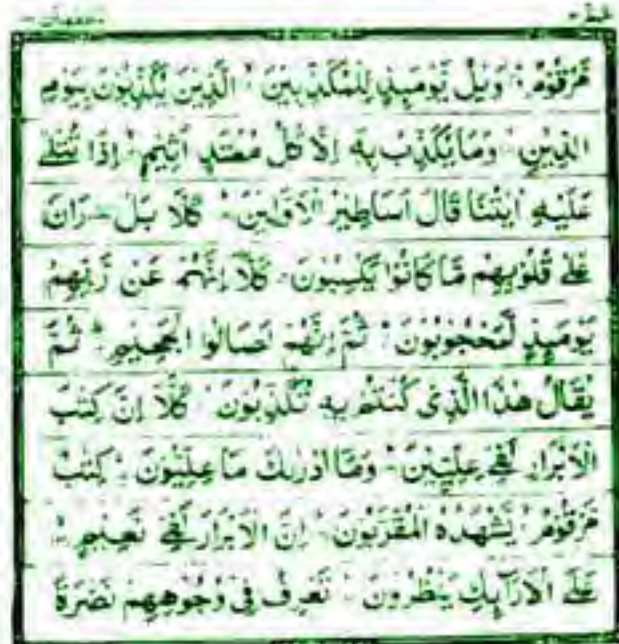 عَمَّ ٣٠
مَّرْقُوْمٌ ۝ وَيْلٌ يَّوْمَئِذٍ لِّلْمُكَذِّبِيْنَ ۝ الَّذِيْنَ يُكَذِّبُوْنَ بِيَوْمِ
الدِّيْنِ ۝ وَمَا يُكَذِّبُ بِهٖۤ اِلَّا كُلُّ مُعْتَدٍ اَثِيْمٍ ۝ اِذَا تُتْلٰى
عَلَيْهِ اٰيٰتُنَا قَالَ اَسَاطِيْرُ الْاَوَّلِيْنَ ۝ كَلَّا بَلْ ۜ رَانَ
عَلٰى قُلُوْبِهِمْ مَّا كَانُوْا يَكْسِبُوْنَ ۝ كَلَّاۤ اِنَّهُمْ عَنْ رَّبِّهِمْ
يَوْمَئِذٍ لَّمَحْجُوْبُوْنَ ۝ ثُمَّ اِنَّهُمْ لَصَالُوا الْجَحِيْمِ ۝ ثُمَّ
يُقَالُ هٰذَا الَّذِيْ كُنْتُمْ بِهٖ تُكَذِّبُوْنَ ۝ كَلَّاۤ اِنَّ كِتٰبَ
الْاَبْرَارِ لَفِيْ عِلِّيِّيْنَ ۝ وَمَاۤ اَدْرٰىكَ مَا عِلِّيُّوْنَ ۝ كِتٰبٌ
مَّرْقُوْمٌ ۝ يَّشْهَدُهُ الْمُقَرَّبُوْنَ ۝ اِنَّ الْاَبْرَارَ لَفِيْ نَعِيْمٍ ۝
عَلَى الْاَرَآئِكِ يَنْظُرُوْنَ ۝ تَعْرِفُ فِيْ وُجُوْهِهِمْ نَضْرَةَ